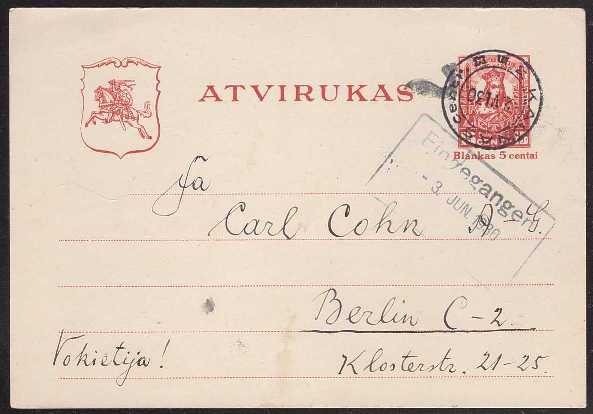 ATVIRUKAS
VI 30
Blankas 5 centai
Eingegangen
- 3. JUN. 1930
Fa
Carl Cohn A-G.
Berlin C-2.
Vokietija!
Klosterstr. 21-25.